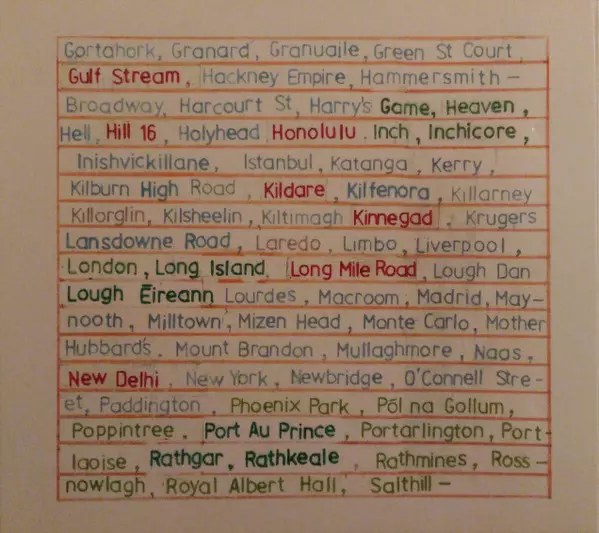 Gortahork, Granard, Granuaile, Green St Court,
Gulf Stream, Hackney Empire, Hammersmith –
Broadway, Harcourt St, Harry's Game, Heaven,
Hell, Hill 16, Holyhead Honolulu. Inch, Inchicore,
Inishvickillane, Istanbul, Katanga, Kerry,
Kilburn High Road, Kildare, Kilfenora, Killarney
Killorglin, Kilsheelin, Kiltimagh Kinnegad, Krugers
Lansdowne Road, Laredo, Limbo, Liverpool,
London, Long Island, Long Mile Road, Lough Dan
Lough Éireann Lourdes, Macroom, Madrid, May-
nooth, Milltown, Mizen Head, Monte Carlo, Mother
Hubbard's. Mount Brandon, Mullaghmore, Naas,
New Delhi, New York, Newbridge, O'Connell Stre-
et, Paddington, Phoenix Park, Pól na Gollum,
Poppintree. Port Au Prince, Portarlington, Port-
laoise, Rathgar, Rathkeale, Rathmines, Ross-
nowlagh, Royal Albert Hall, Salthill –